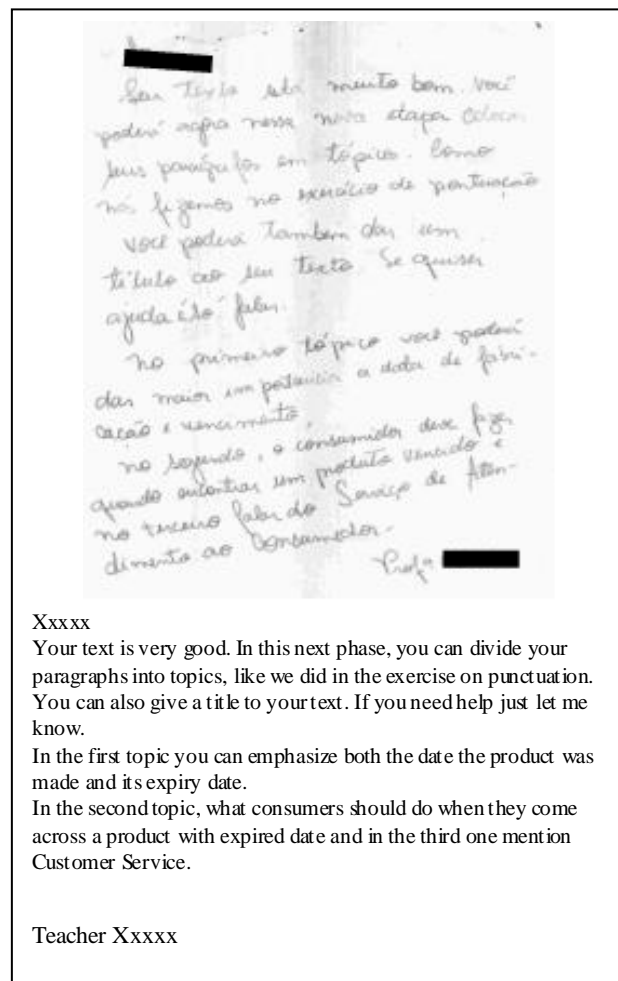 Seu texto está muito bom. Você
poderá agora nessa nova etapa colocar
seus parágrafos em tópico. Como
nós fizemos no exercício de pontuação
Você poderá também dar um
título ao seu texto. Se quiser
ajuda é só falar.
No primeiro tópico você poderá
dar maior importancia a data de fabri-
cação e vencimento.
no segundo, o consumidor deve fazer
quando encontrar um produto vencido e
no terceiro falar do Serviço de Aten-
dimento ao Consumidor.
Profª
Xxxxx
Your text is very good. In this next phase, you can divide your
paragraphs into topics, like we did in the exercise on punctuation.
You can also give a title to your text. If you need help just let me
know.
In the first topic you can emphasize both the date the product was
made and its expiry date.
In the second topic, what consumers should do when they come
across a product with expired date and in the third one mention
Customer Service.
Teacher Xxxxx